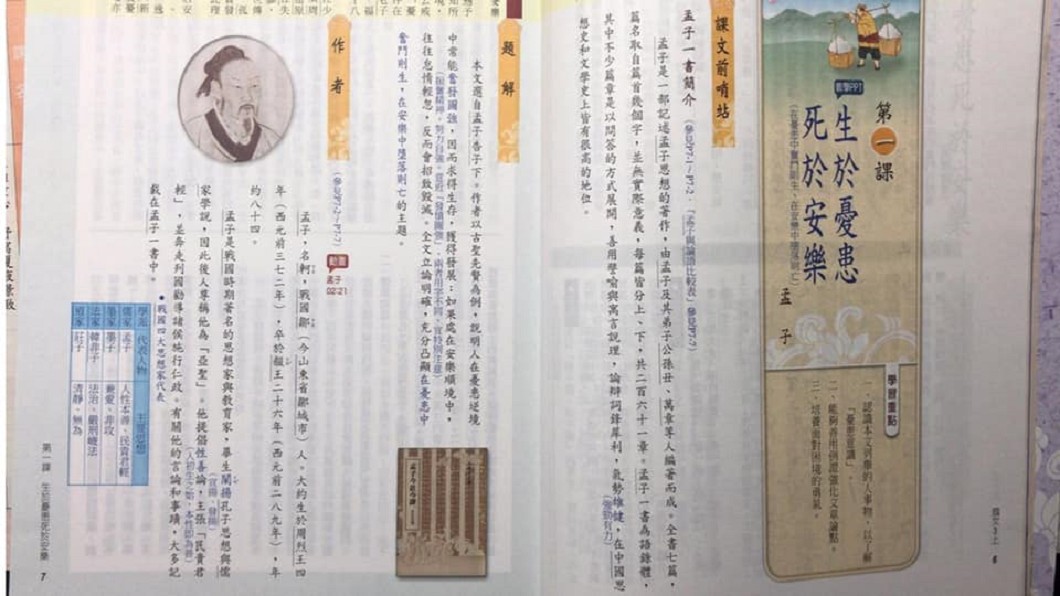 第一課
生於憂患
死於安樂
教學PPT
(在憂患中奮鬥則生,在安樂中墮落則亡)
孟子
學習重點
一、認識本文列舉的人事物,以了解
「憂患意識」。
二、能夠善用例證強化文章論點。
三、培養面對困境的勇氣。
課文前哨站
孟子一書簡介
(參見P7-1~P7-2.「孟子與論語比較表」參見P7-7)
孟子是一部記述孟子思想的著作,由孟子及其弟子公孫丑、萬章等人編著而成。全書七篇,
篇名取自篇首幾個字,並無實際意義,每篇皆分上、下,共二百六十一章。孟子一書為語錄體,
其中不少篇章是以問答的方式展開,善用譬喻與寓言說理,論辯詞鋒犀利,氣勢雄健,在中國思
(強勁有力)
想史和文學史上皆有很高的地位。
6
題解
本文選自孟子告子下。作者以古聖先賢為例,說明人在憂患逆境
中常能奮發圖強,因而求得生存,獲得發展;如果處在安樂順境中,
(振奮精神,努力自強。音近「發憤圖強」,兩者用字不同,宜特別注意)
往往怠惰輕忽,反而會招致毀滅。全文立論明確,充分凸顯在憂患中
奮鬥則生,在安樂中墮落則亡的主題。
作者
(參見P7-2~P7-7)
動畫
孟子
02'21"
孟子,名軻,戰國鄒(今山東省鄒城市)人。大約生於周烈王四
年(西元前三七二年),卒於赧王二十六年(西元前二八九年),年
約八十四。
孟子是戰國時期著名的思想家與教育家,畢生闡揚孔子思想與儒
(宣揚、發揚)
家學說,因此後人尊稱他為「亞聖」。他提倡性善論,主張「民貴君
(人初生之始,本性即為善)
輕」,並奔走列國勸導諸侯施行仁政。有關他的言論和事蹟,大多記
載在孟子一書中。
•戰國四大思想家代表
學派 代表人物 主要思想
儒家 孟子 人性本善、民貴君輕
墨家 墨子 兼愛、非攻
法家 韓非子 法治、嚴刑峻法
道家 莊子 清靜、無為
第一課 生於憂患死於安樂
7